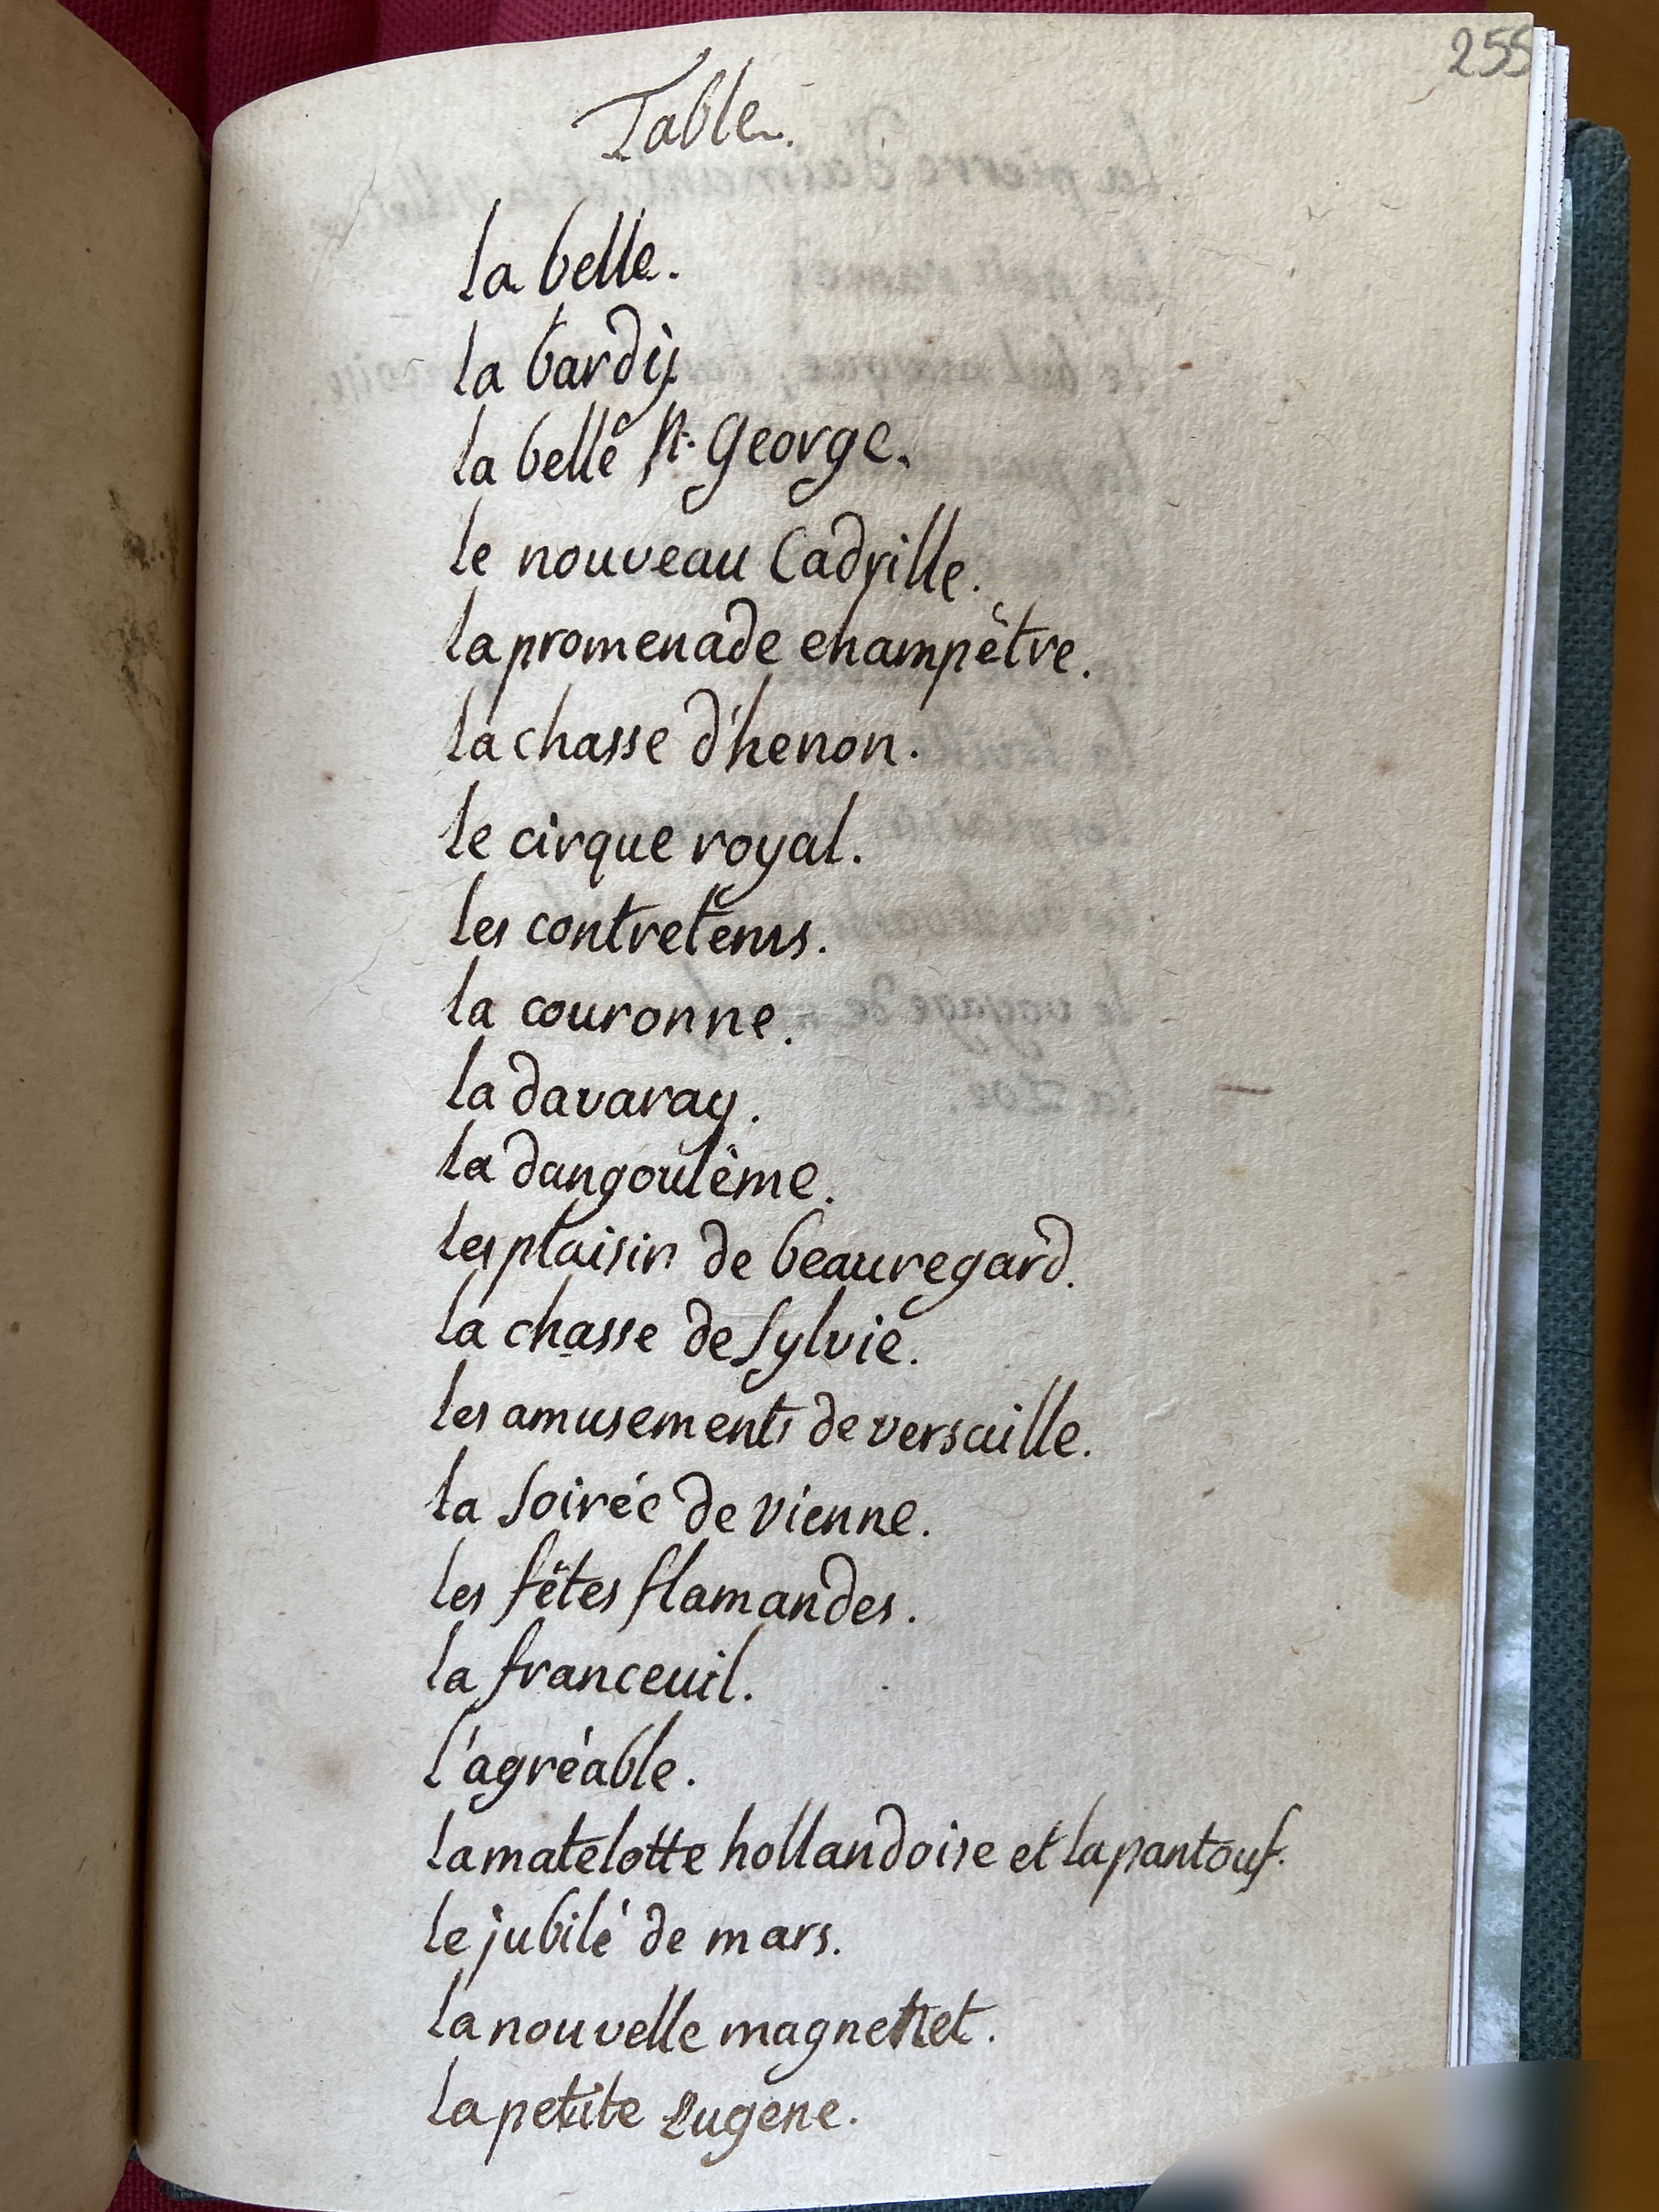 255
Table.
la belle.
la bardis
la belle St. George.
le nouveau Cadrille.
la promenade champêtre.
la chasse d'henon.
le cirque royal.
les contretems.
la couronne.
la davaray.
la dangoulême.
les plaisirs de beauregard.
la chasse de Sylvie.
les amusements de versaille.
la Soirée de vienne.
les fêtes flamandes.
la franceuil.
l'agréable.
la matelotte hollandoise et la pantouf.
le jubilé de mars.
la nouvelle
la petite Eugene.